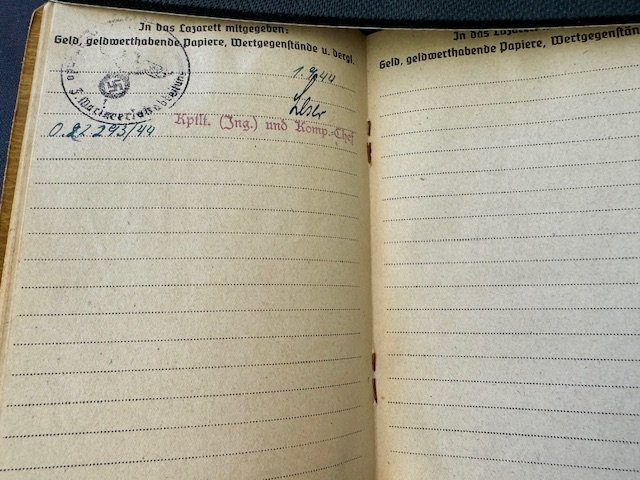 In das Lazarett mitgegeben:
Geld, geldwerthabende Papiere, Wertgegenstände u. dergl.
1.9.44
Kptlt. (Ing.) und Komp.-Chef
293/44
In das Lazarett
Geld, geldwerthabende Papiere, Wertgegenstän